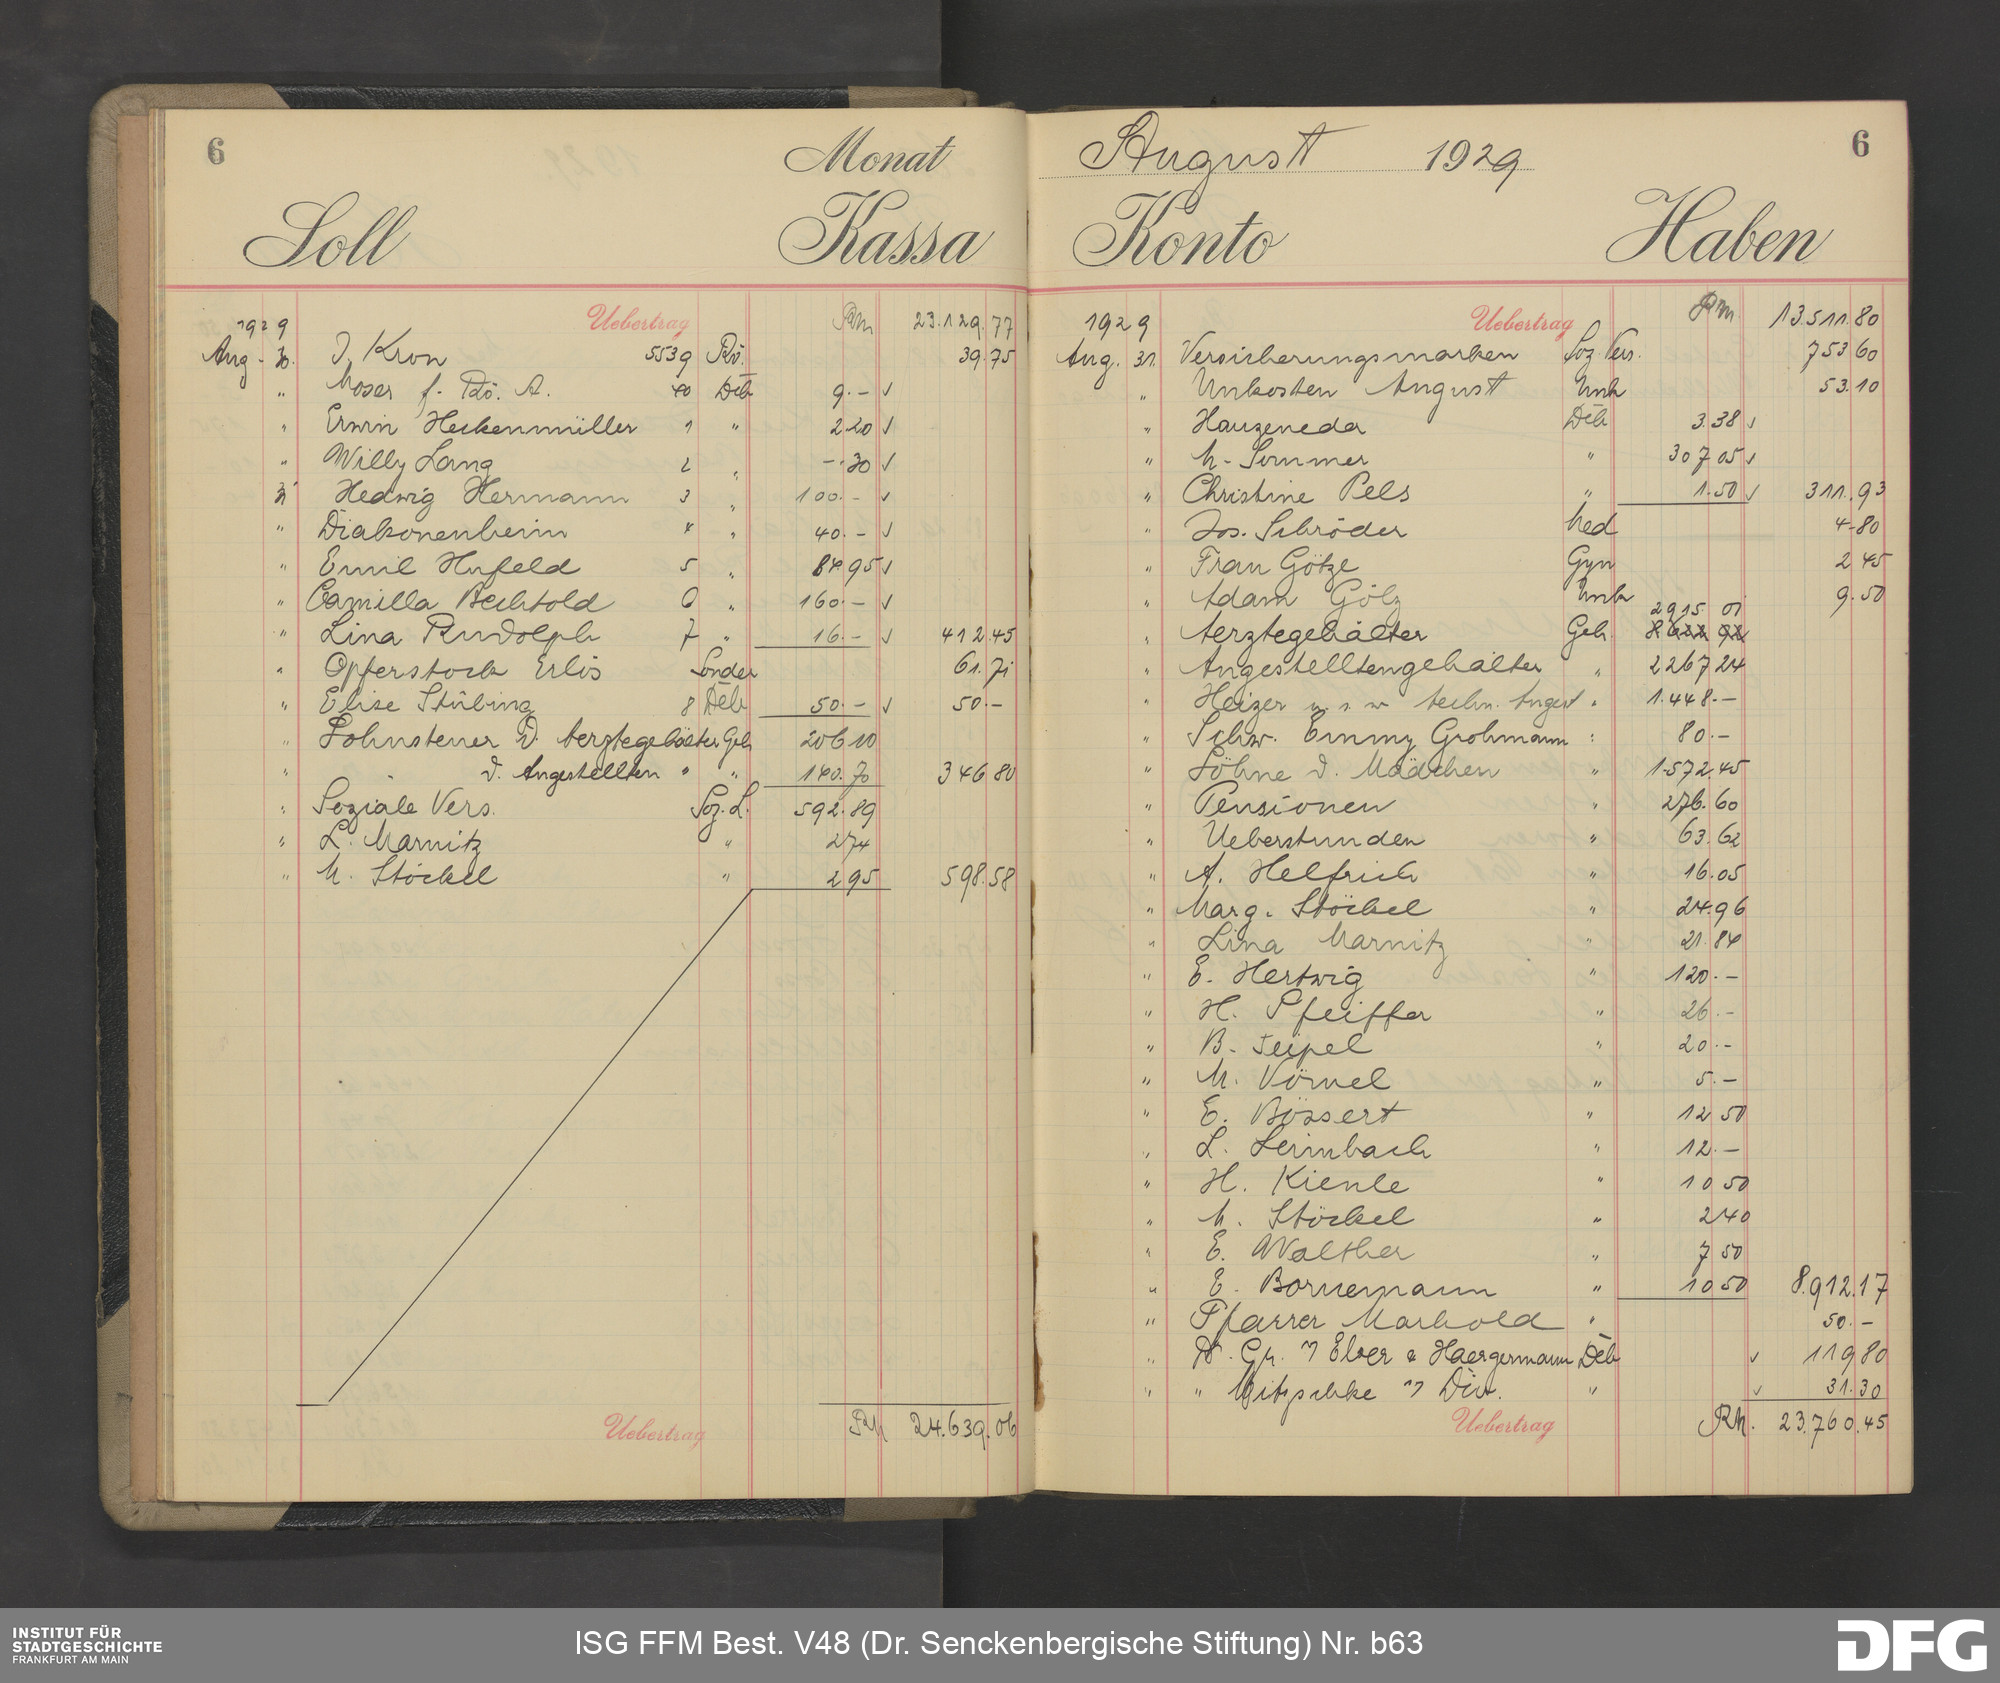 6
Monat
Soll Kassa
Uebertrag Rm 23.129.77
1929
Aug. 30. J. Kron 5539 Rö. 39.75
" Moser f. Rö. A. 40 Deb 9.- ✓
" Erwin Heckenmüller 1 " 2.20 ✓
" Willy Lang 2 " -.30 ✓
31 Hedwig Hermann 3 " 100.- ✓
" Diakonenheim 4 " 40.- ✓
" Emil Hufeld 5 " 84.95 ✓
" Camilla Bechtold 6 " 160.- ✓
" Lina Rudolph 7 " 16.- ✓ 412.45
" Opferstock Erlös Sonder 61.71
" Elise Stübing 8 Deb 50.- ✓ 50.-
" Lohnsteuer d. Aerztegehälter Geh 206 10
" d. Angestellten " " 140.70 346 80
" Soziale Vers. Soz. L. 592.89
" L. Marnitz " 2 74
" M. Stöckel " 2 95 598.58
Uebertrag RM 24.639.06
August 1929
6
Konto Haben
1929 Uebertrag Rm. 13.511.80
Aug. 31. Versicherungsmarken Soz. Vers. 753 60
" Unkosten August Unk 53.10
" Hauzeneder Deb 3.38 ✓
" M. Sommer " 307 05 ✓
" Christine Pels " 1.50 ✓ 311.93
" Jos. Schröder Med 4.80
" Frau Götze Gyn 2 45
" Adam Gölz Unk 9.50
2915 01
" Aerztegehälter Geh.
" Angestelltengehälter " 2267 24
" Heizer u. s. w techn. Angest " 1.448.-
" Schw. Emmy Grohmann " 80.-
" Löhne d. Mädchen " 1.572.45
" Pensionen " 276.60
" Ueberstunden " 63.62
" A. Helfrich " 16.05
" Marg. Stöckel " 24.96
" Lina Marnitz " 21.84
" E. Hertwig " 120.-
" H. Pfeiffer " 26.-
" B. Seipel " 20.-
" M. Vömel " 5.-
" E. Bössert " 12 50
" L. Leimbach " 12.-
" H. Kienle " 10 50
" M. Stöckel " 2 40
" E. Walther " 7 50
" E. Bornemann " 10 50 8.912.17
" Pfarrer Marhold " 50.-
" Deb ✓ 119 80
" " ✓ 31.30
Uebertrag RM. 23.760.45
INSTITUT FÜR
STADTGESCHICHTE
FRANKFURT AM MAIN
ISG FFM Best. V48 (Dr. Senckenbergische Stiftung) Nr. b63
DFG